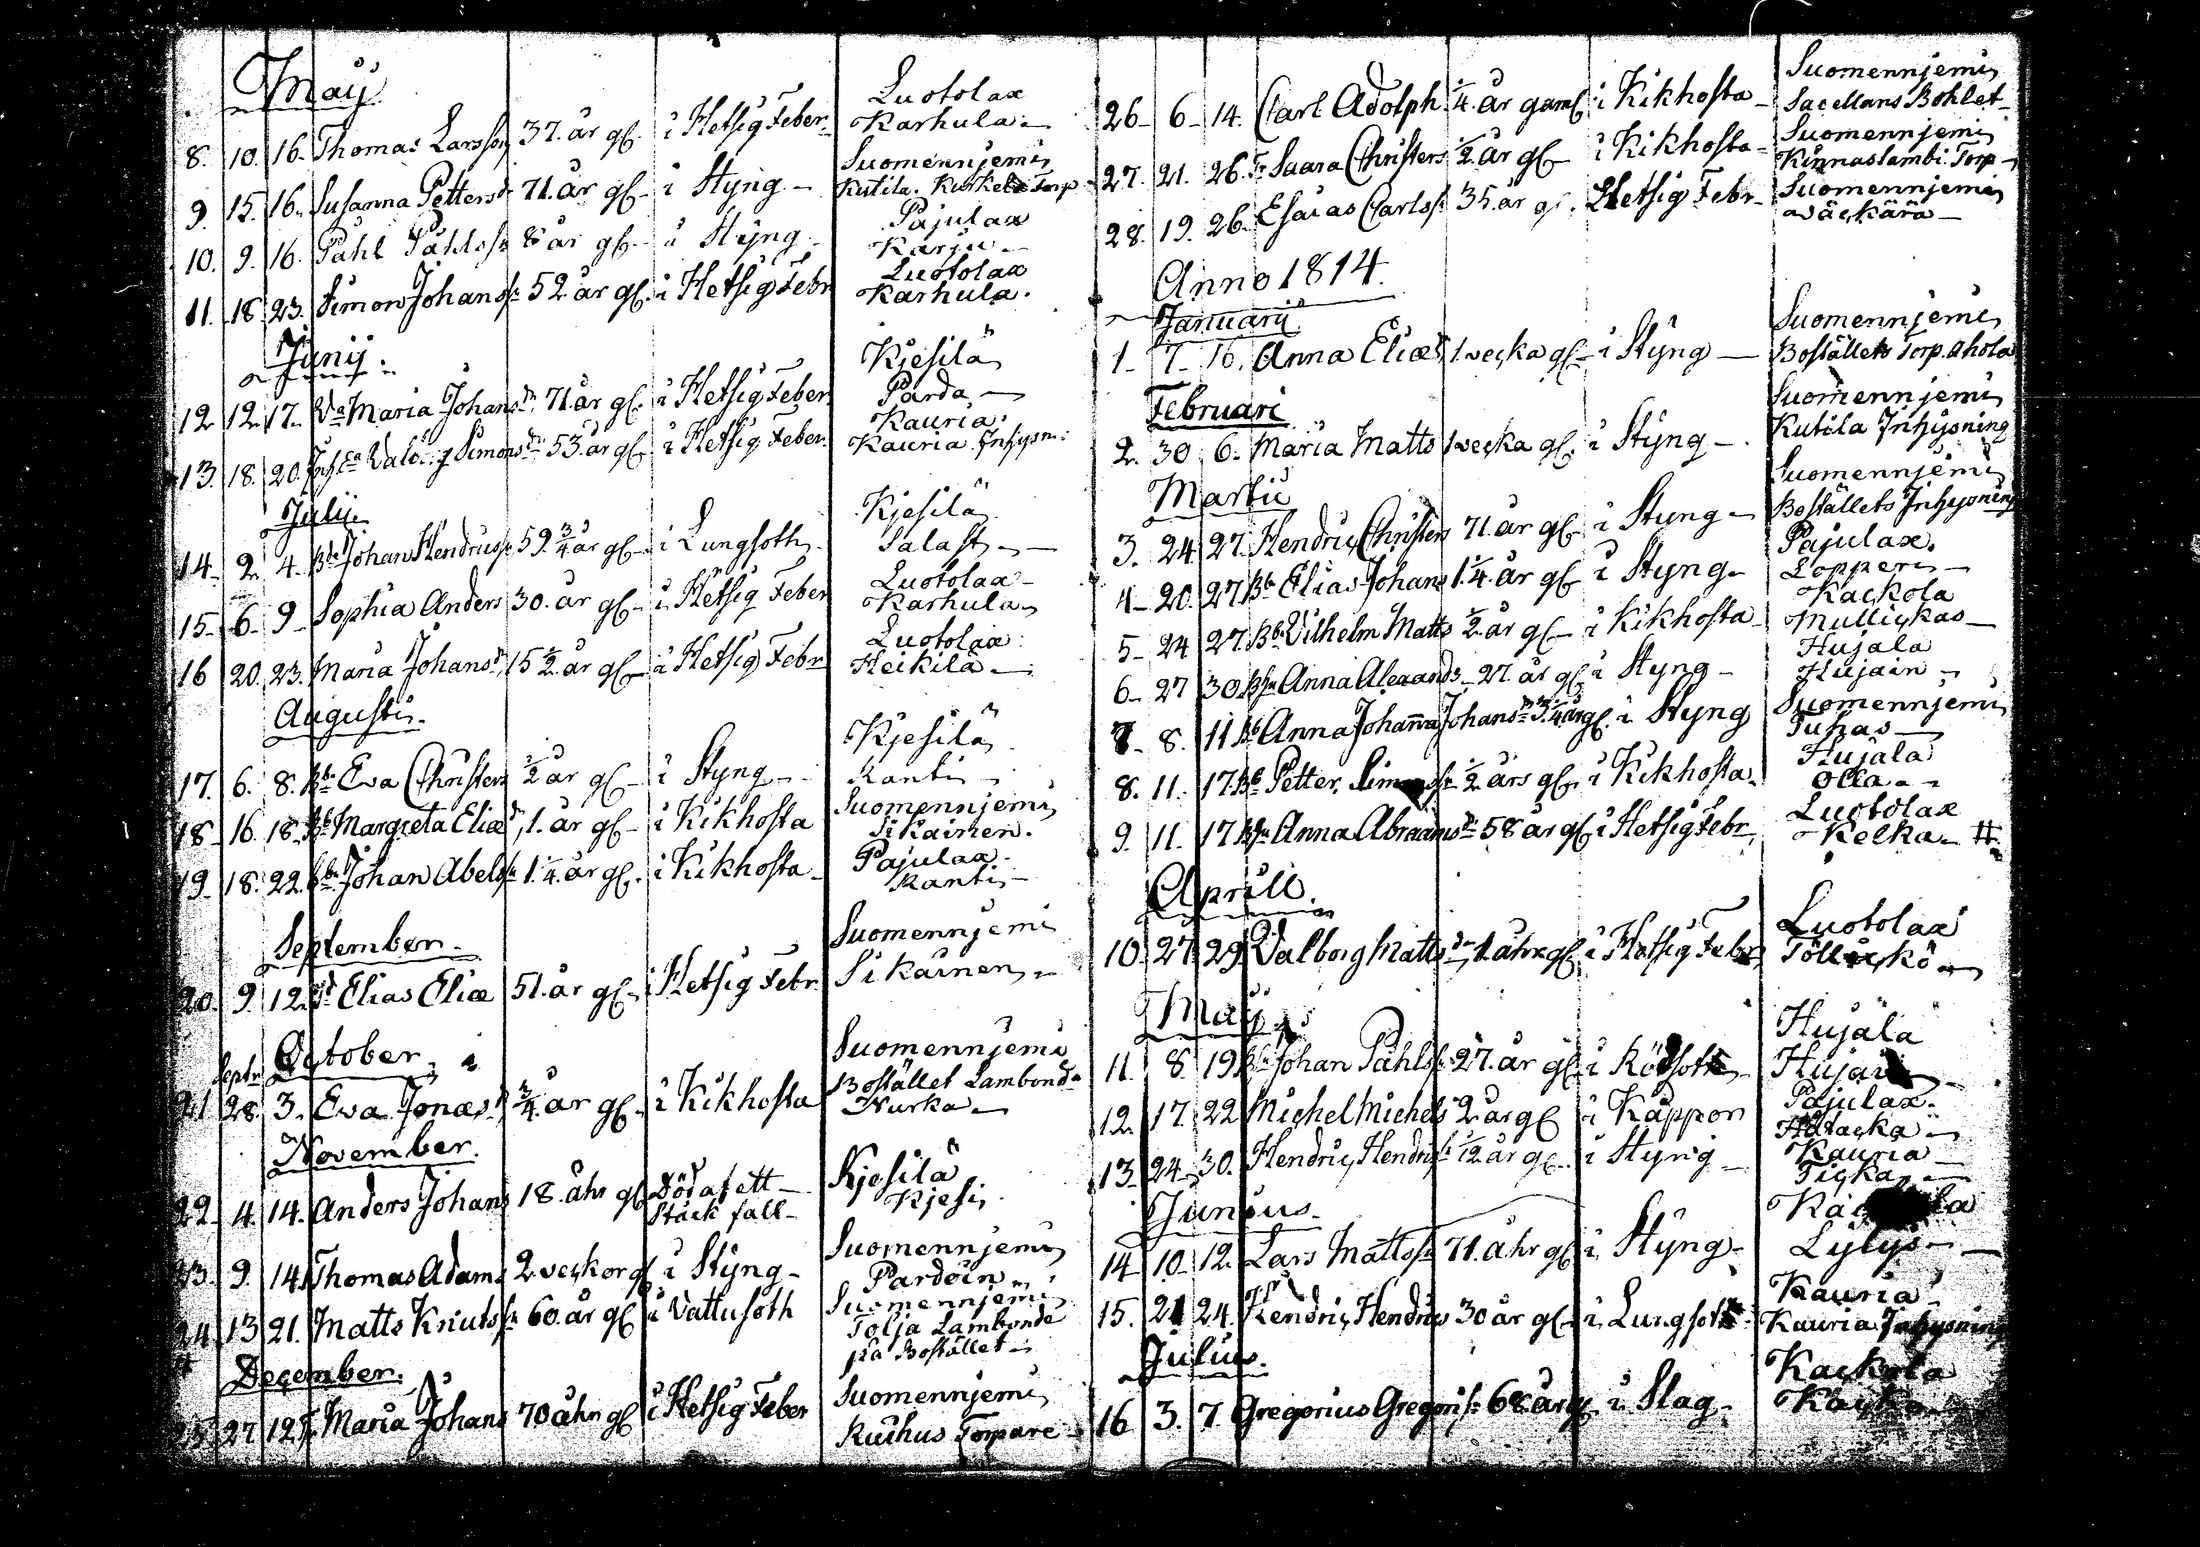 May
Luotolax
8. 10. 16. Thomas Larsson 37. år gl. i Hetsig Feber Karhula
Suomennjemi
9. 15. 16. Susanna Petters dr 71. år gl. i Styng Kutila. Kurkela Torp
Pajulax
10. 9. 16. Påhl Påhlss. 8 år gl. i Styng Karju
Luotolax
11. 18. 23. Simon Johanss. 52 år gl. i Hetsig Febr Karhula.
Junij.
Kjesilä
12 12. 17. Ea Maria Johans dr. 71. år gl. i Hetsig Feber Parda
Kauria
13. 18. 20. Simons dr 53. år gl. i Hetsig Feber. Kauria Inhysn:
Julij
Kjesilä
14. 2. 4. Johan Hendricss. 59 3/4 år gl. i Lungsoth Salast
Luotolax
15. 6. 9. Sophia Anders 30. år gl. i Hetsig Feber Karhula
Luotolax
16 20. 23. Maria Johans dr 15 1/2 år gl. i Hetsig Febr Heikilä
Augusti.
Kjesilä
17. 6. 8. Bb Eva Christers 1/2 år gl. i Styng Kanti
Suomennjemi
18. 16. 18. Bb Margreta Eliæ dr, 1. år gl. i Kikhosta Sikainen.
Pajulax
19. 18. 22. Bb Johan Abels s. 1 1/4. år gl. i Kikhosta Kanti
September
Suomennjemi
20. 9. 12. Elias Eliæ 51. år gl. i Hetsig Febr. Sikainen
October
Septr
Suomennjemi
Bostället Lambond
21 28. 3. Eva Jonæ dr 3/4 år gl. i Kikhosta Nurka
November.
Kjesilä
22. 4. 14. Anders Johans 18. åhr gl. Död af ett Kjesi
Stäck fall
Suomennjemi
23. 9. 14. Thomas Adams 2. veckor gl. i Styng Pardoin
Suomennjemi
24. 13 21. Matts Knuts s. 60. år gl. i Vattusoth Tolja Lambonde
på Bostället
December.
Suomennjemi
25. 27 12. Maria Johans 70 åhr gl. i Hetsig Feber Ruihus Torpare
Suomennjemi
26. 6. 14. Carl Adolph 1/4. år gaml. i Kikhosta Sacellans Bohlet
Suomennjemi
27. 21. 26. Saara Christers 1/2. år gl. i Kikhosta Kinnaslambi Torp
Suomennjemi
28. 19. 26. Esaias Carlss. 35. år gl. Hetsig Febr. Väckärä
Anno 1814.
Januarii
Suomennjemi
1. 7. 16. Anna Eliæ dr 1. vecka gl. i Styng Boställets Torp. Ahola
Februari
Suomennjemi
2. 30 6. Maria Matts 1 vecka gl. i Styng Kutila Inhysning
Martii
Suomennjemi
3. 24 27. Hendric Christers 71. år gl. i Styng Boställets Inhysning
Pajulax.
4. 20. 27. Bb Elias Johans 1 1/4. år gl. i Styng Lopperi
Kackola
5. 24 27. Bb Vilhelm Matts 1/2. år gl. i Kikhosta Mullickas
Hujala
6. 27 30. Anna Alexands 27. år gl. i Styng Hujain
Suomennjemi
7. 8. 11 Anna Johanna Johans dr 3 3/4 år gl. i Styng Tuhas
Hujala
8. 11. 17. Bb Petter Simonss. 1/2 års gl. i Kikhosta. Olla
Luotolax
9. 11. 17 Anna Abraams dr 58 år gl. i Hetsig Febr. Kelka #
Aprill.
Luotolax
10. 27. 29. Valborg Matts dr 1 åhr gl. i Hetsig Febr
May
Hujala
11. 8. 19. Johan Påhlss. 27. år gl. i Rödsoth
Pajulax.
12. 17. 22. Michel Michels 2. år gl. i Kåppor Hatacka
Kauria
13. 24. 30. Hendric Hendricss. 1/2 år gl. i Styng Ticka
Junius.
14. 10. 12. Lars Mattss. 71. åhr gl. i Styng Lylys
Kauria
15. 21 24. Hendric Hendrics 30 år gl. i Lungsoth Kauria Inhysning
Julius.
Kackola
16 3. 7 Gregorius Gregoris. 68 år gl. i Slag